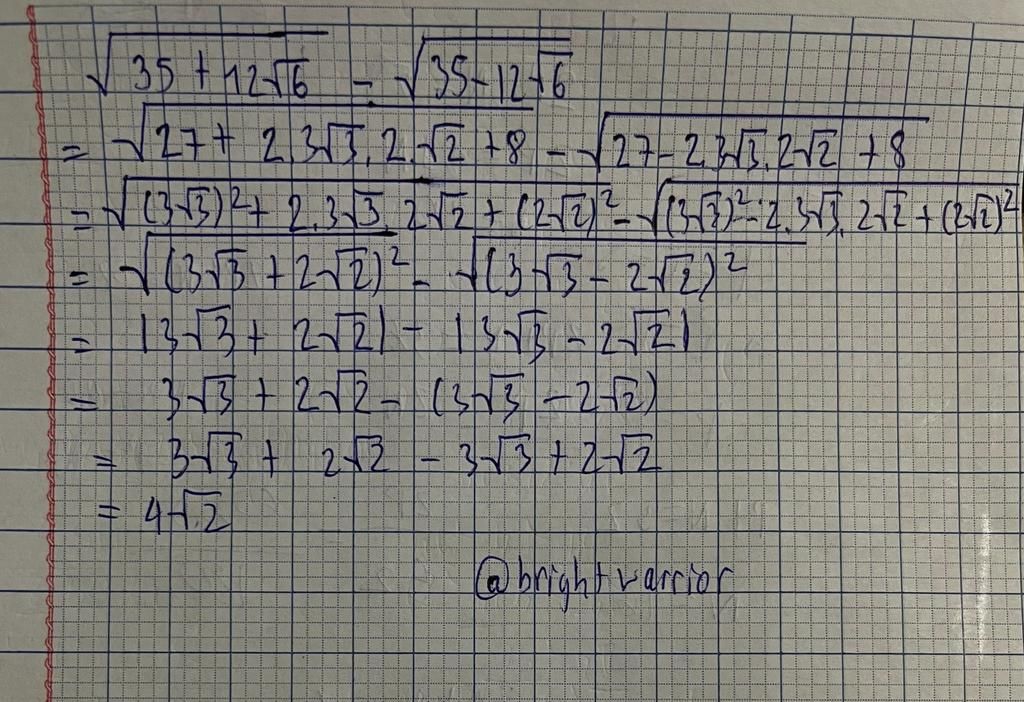 √(35 + 12√6) - √(35 - 12√6)
= √(27 + 2.3√3.2.√2 + 8) - √(27 - 2.3√3.2√2 + 8)
= √((3√3)² + 2.3√3.2√2 + (2√2)²) - √((3√3)² - 2.3√3.2√2 + (2√2)²)
= √((3√3 + 2√2)²) - √((3√3 - 2√2)²)
= |3√3 + 2√2| - |3√3 - 2√2|
= 3√3 + 2√2 - (3√3 - 2√2)
= 3√3 + 2√2 - 3√3 + 2√2
= 4√2
@brightvarrior